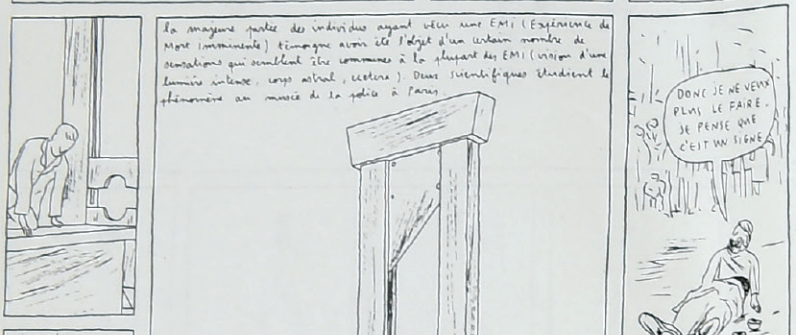 la majeure partie des individus ayant vécu une EMI (Expérience de
Mort Imminente) témoigne avoir été l'objet d'un certain nombre de
sensations qui semblent être communes à la plupart des EMI (vision d'une
lumière intense, corps astral, cetera). Deux scientifiques étudient le
phénomène au musée de la police à Paris.
DONC JE NE VEUX
PLUS LE FAIRE.
JE PENSE QUE
C'EST UN SIGNE